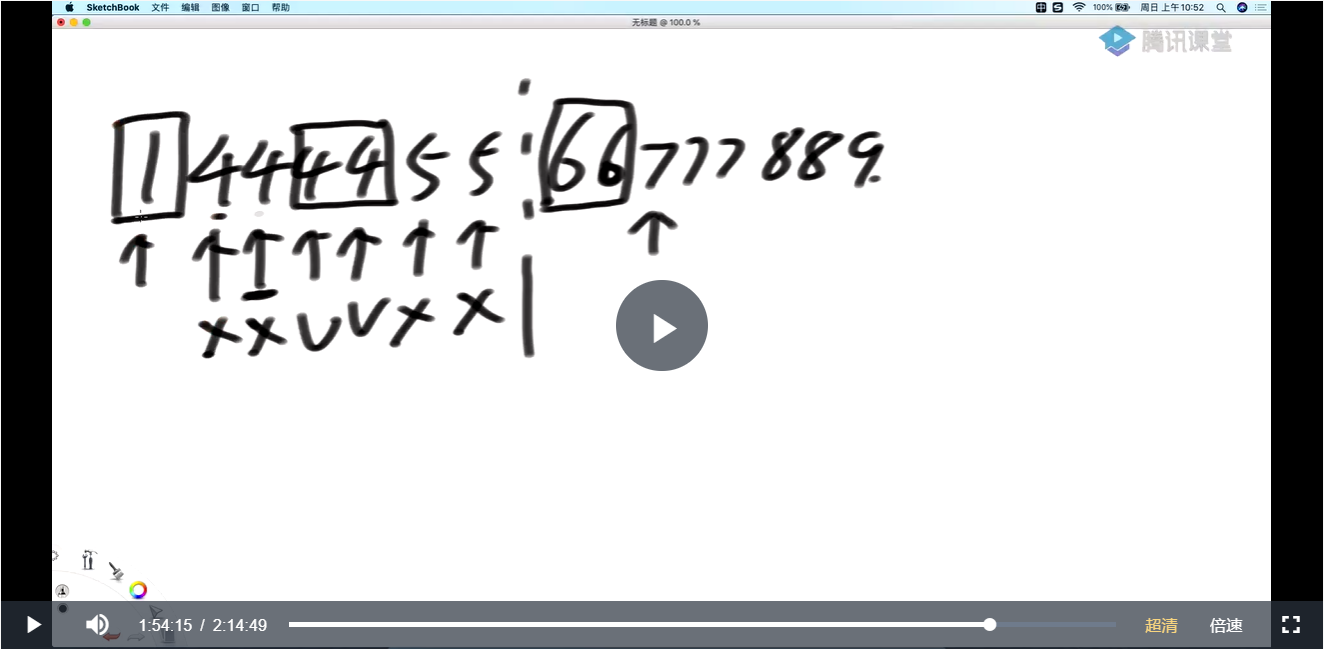 SketchBook 文件 编辑 图像 窗口 帮助 中 S 100% 周日 上午10:52
无标题 @ 100.0 %
腾讯课堂
1 4 4 4 4 5 5 6 6 7 7 7 8 8 9.
x x v v x x
1:54:15 / 2:14:49 超清 倍速